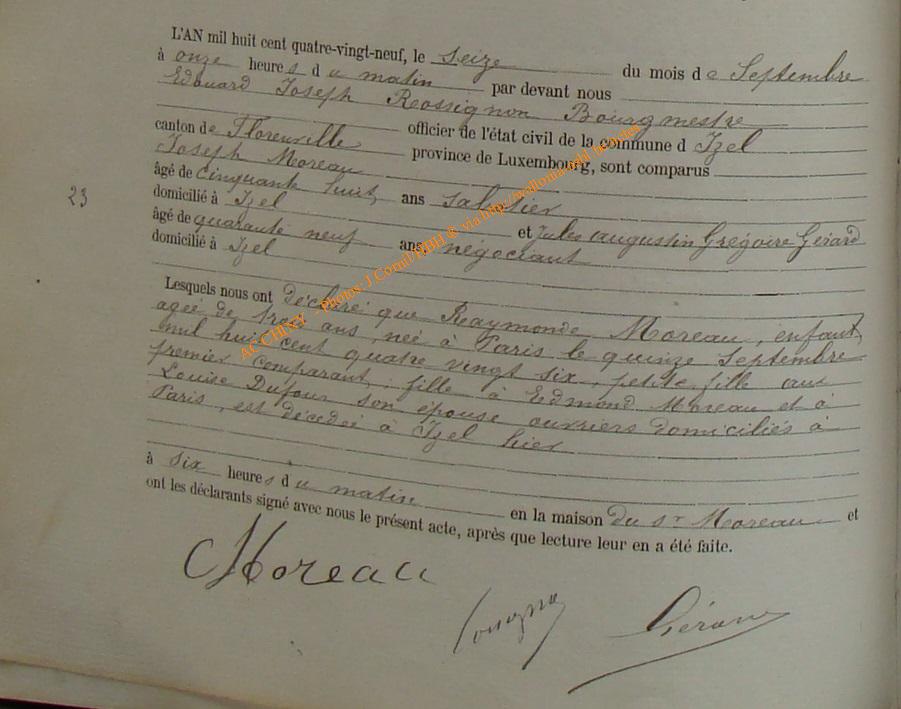 L'AN mil huit cent quatre-vingt-neuf, le seize du mois de Septembre
à onze heures du matin par devant nous
Edouard Joseph Rossignon Bourgmestre
officier de l'état civil de la commune d Izel
canton de Florenville province de Luxembourg, sont comparus
Joseph Moreau
âgé de cinquante huit ans sabotier
domicilié à Izel et Jules Augustin Grégoire Gérard
âgé de quarante neuf ans négociant
domicilié à Izel
23
Lesquels nous ont déclaré que Raymonde Moreau, enfant
agée de trois ans, née à Paris le quinze Septembre
mil huit cent quatre vingt six, petite fille au
premier comparant, fille à Edmond Moreau et à
Louise Dufour son épouse ouvriers domiciliés à
Paris, est décédée à Izel hier
à six heures du matin en la maison du sr Moreau et
ont les déclarants signé avec nous le présent acte, après que lecture leur en a été faite.
Moreau
Gérard
AC CHINY - Photos: J.Cornil/HBH @ via http://wallonia